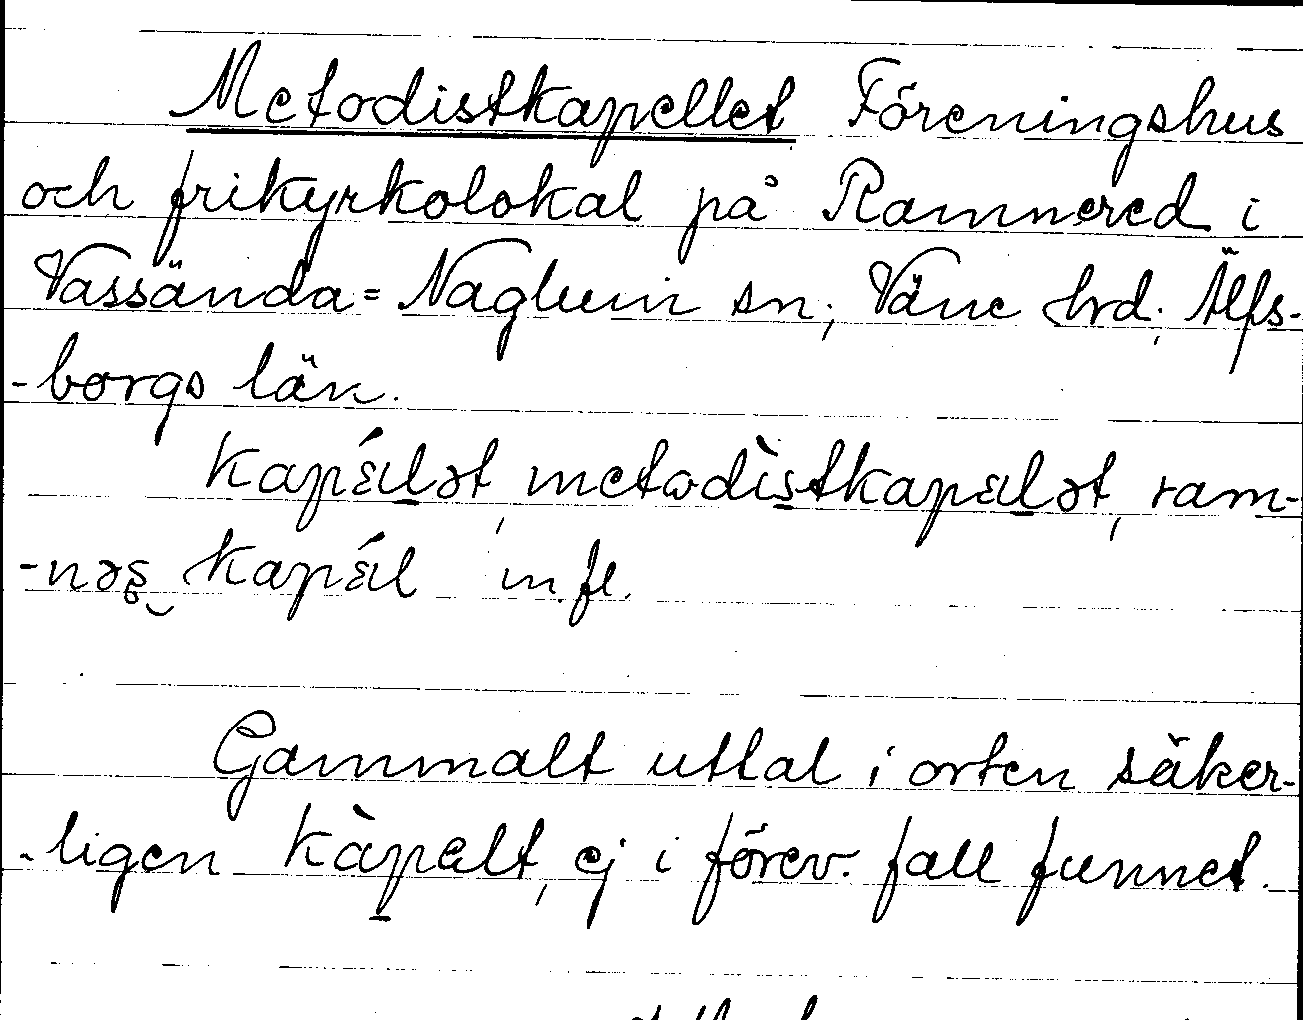 Metodistkapellet Föreningshus
och frikyrkolokal på Ramnered i
Vassända=Naglum sn, Väne hrd, Älfs-
-borgs län.
kapǽlət, metodìstkapælət, ram-
-nəs kapǽl m.fl.
Gammalt uttal i orten säker-
-ligen kàpælt, ej i förev. fall funnet.